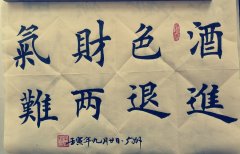 酒色財氣
進退两難
壬寅年九月廿日